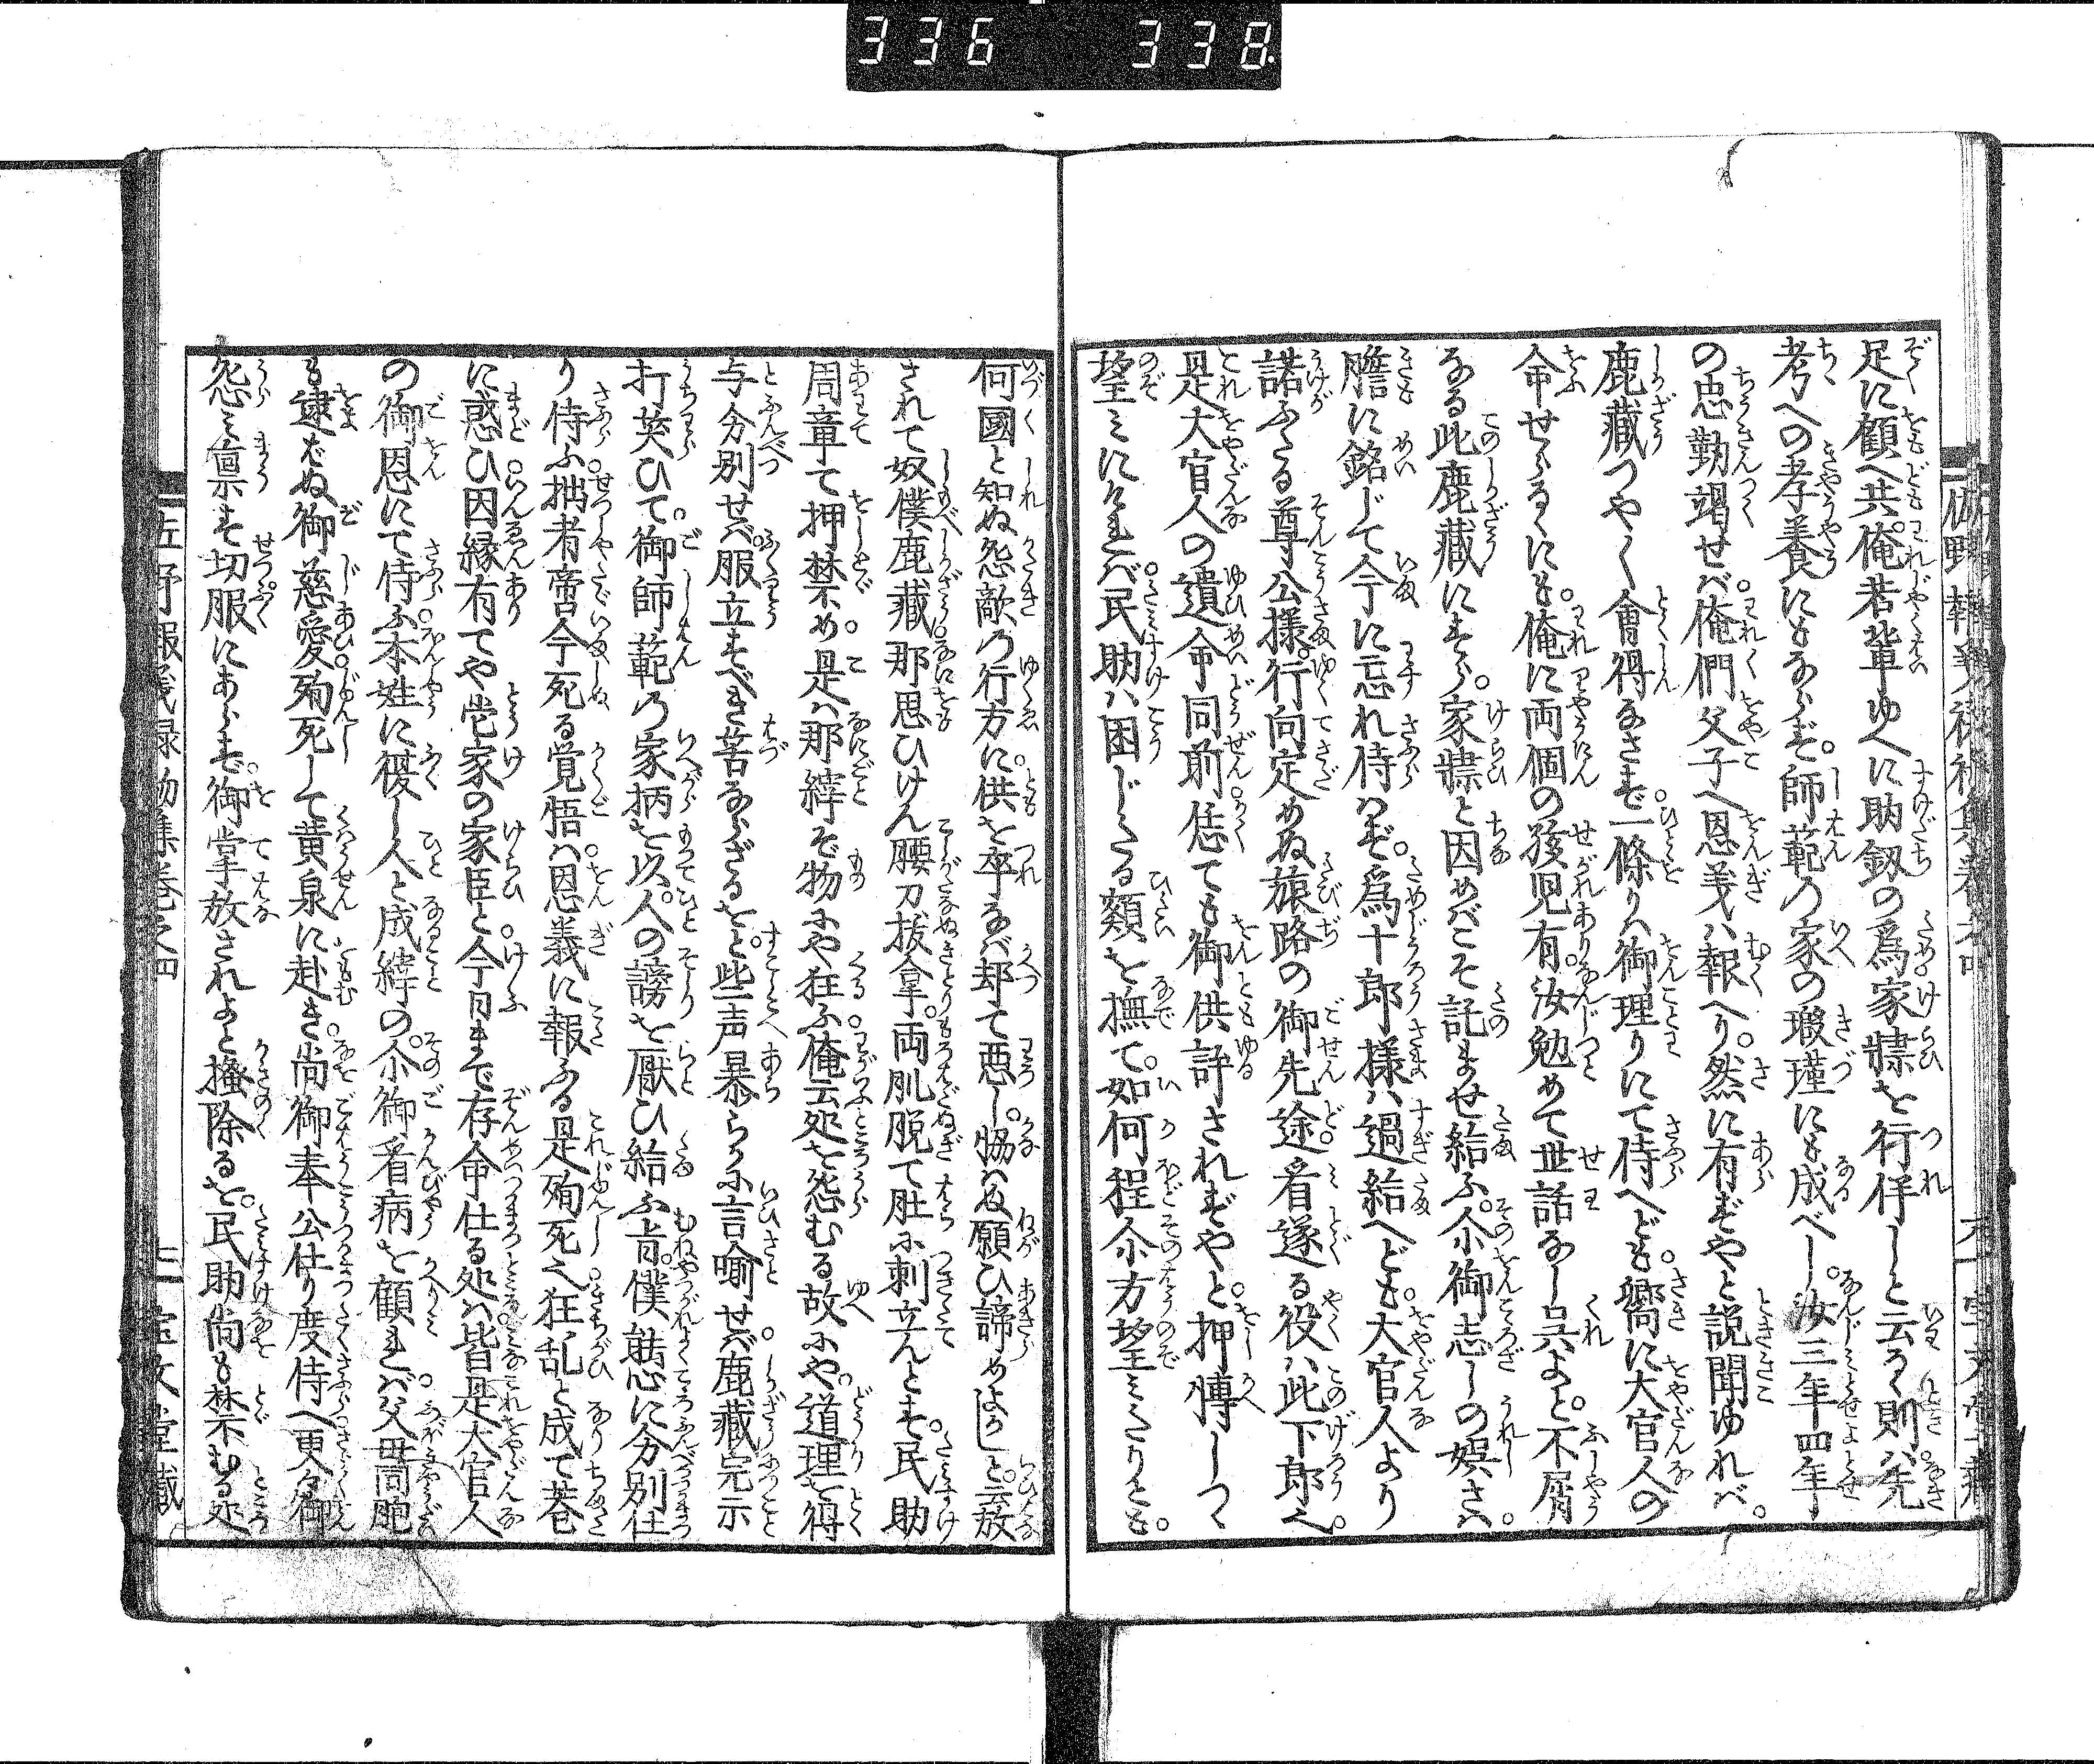 336 338
足に顧へ共。俺若輩ゆへに助釼の為家隷を行伴しと云るゝ則ハ先
考への孝養にもならず。師範の家の瑕瑾にも成べし。汝三年四年
の忠勤竭せバ。俺們父子へ恩義ハ報へり。然に有ずやと説聞ゆれバ。
鹿蔵つや〱會得なさず。一條りハ御理りにて侍へども。嚮に大官人の
命せらるゝにも。俺に両個の孩児有。汝勉めて世話なし呉よと。不屑
なる此鹿蔵にすら。家隷と因めばこそ託ませ給ふ。尓御志しの娯さハ。
膽に銘じて今に忘れ侍ハず。為十郎様ハ過給へども。大官人より
諾ふたる尊公様。行向定めぬ旅路の御先途看遂る役ハ此下郎へ。
是大官人の遺命同前。恁ても御供許されずやと。押慱しつゝ
望ミにけれバ。民助ハ困じたる顙を撫て。如何程尓方望ミたりとも。
何國と知ぬ怨敵の行方に。供を卒なバ却て悪し。恊ハぬ願ひ諦めよかしと。云放
されて奴僕鹿蔵。那思ひけん腰刀抜拿。両肌脱て肚に刺立んとす。民助
周章て押禁め。是ハ那縡ぞ物にや狂ふ。俺云処を怨むる故にや。道理を得
与分別せバ。服立すべき筈ならざるをと。些声暴らかに言喩せバ。鹿蔵完示
打笑ひて。御師範の家柄を以。人の謗を厭ひ給ふ旨。僕熟忖に分別仕
り侍ふ。拙者啻今死る覚悟ハ。恩義に報ふる是殉死へ。狂乱と成て巷
に惑ひ。因縁有てや當家の家臣と。今日まで存命仕る処ハ。皆是大官人
の御恩にて侍ふ。本姓に復し人と成縡の。尓御看病を顧れバ。父母同胞
も逮ばぬ御慈愛。殉死して黄泉に赴き。尚御奉公仕り度侍へ。更々御
怨ミ稟す切服にあらず。御掌放されよと掻除るを。民助尚も禁むる処
佐野報義録初集巻之四
三
宝文堂蔵